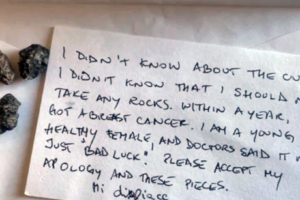 I DIDN'T KNOW ABOUT THE CU
I DIDN'T KNOW THAT I SHOULD N
TAKE ANY ROCKS. WITHIN A YEAR,
GOT A BREAST CANCER. I AM A YOUNG
HEALTHY FEMALE, AND DOCTORS SAID IT W
JUST "BAD LUCK". PLEASE ACCEPT MY
APOLOGY AND THESE PIECES.
Mi dispiace